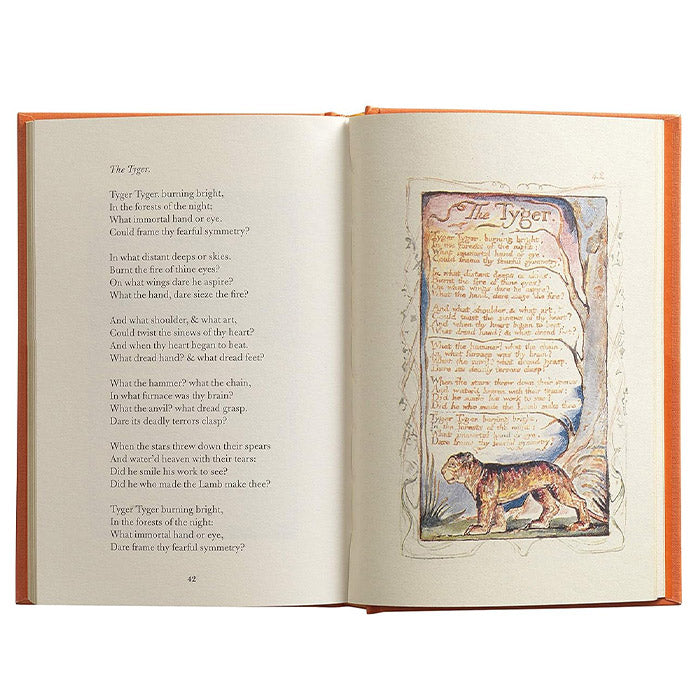 The Tyger.
Tyger Tyger, burning bright,
In the forests of the night;
What immortal hand or eye.
Could frame thy fearful symmetry?
In what distant deeps or skies.
Burnt the fire of thine eyes?
On what wings dare he aspire?
What the hand, dare sieze the fire?
And what shoulder, & what art,
Could twist the sinews of thy heart?
And when thy heart began to beat.
What dread hand? & what dread feet?
What the hammer? what the chain,
In what furnace was thy brain?
What the anvil? what dread grasp.
Dare its deadly terrors clasp?
When the stars threw down their spears
And water'd heaven with their tears:
Did he smile his work to see?
Did he who made the Lamb make thee?
Tyger Tyger burning bright,
In the forests of the night:
What immortal hand or eye,
Dare frame thy fearful symmetry?
42
42
The Tyger.
Tyger Tyger, burning bright,
In the forests of the night;
What immortal hand or eye,
Could frame thy fearful symmetry
In what distant deeps or skies
Burnt the fire of thine eyes?
On what wings dare he aspire?
What the hand, dare sieze the fire?
And what shoulder, & what art,
Could twist the sinews of thy heart?
And when thy heart began to beat,
What dread hand? & what dread feet?
What the hammer? what the chain,
In what furnace was thy brain?
What the anvil? what dread grasp,
Dare its deadly terrors clasp?
When the stars threw down their spears
And water'd heaven with their tears:
Did he smile his work to see?
Did he who made the Lamb make thee
Tyger Tyger burning bright,
In the forests of the night:
What immortal hand or eye,
Dare frame thy fearful symmetry